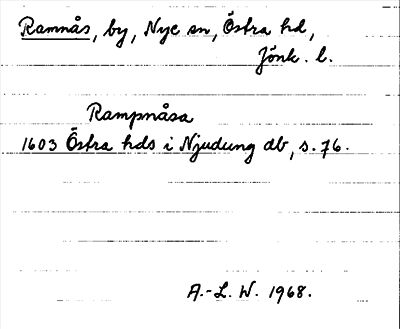 Ramnås, by, Nye sn, Östra hd,
Jönk. l.
Rampnåsa
1603 Östra hds i Njudung db, s. 76.
A.-L. W. 1968.